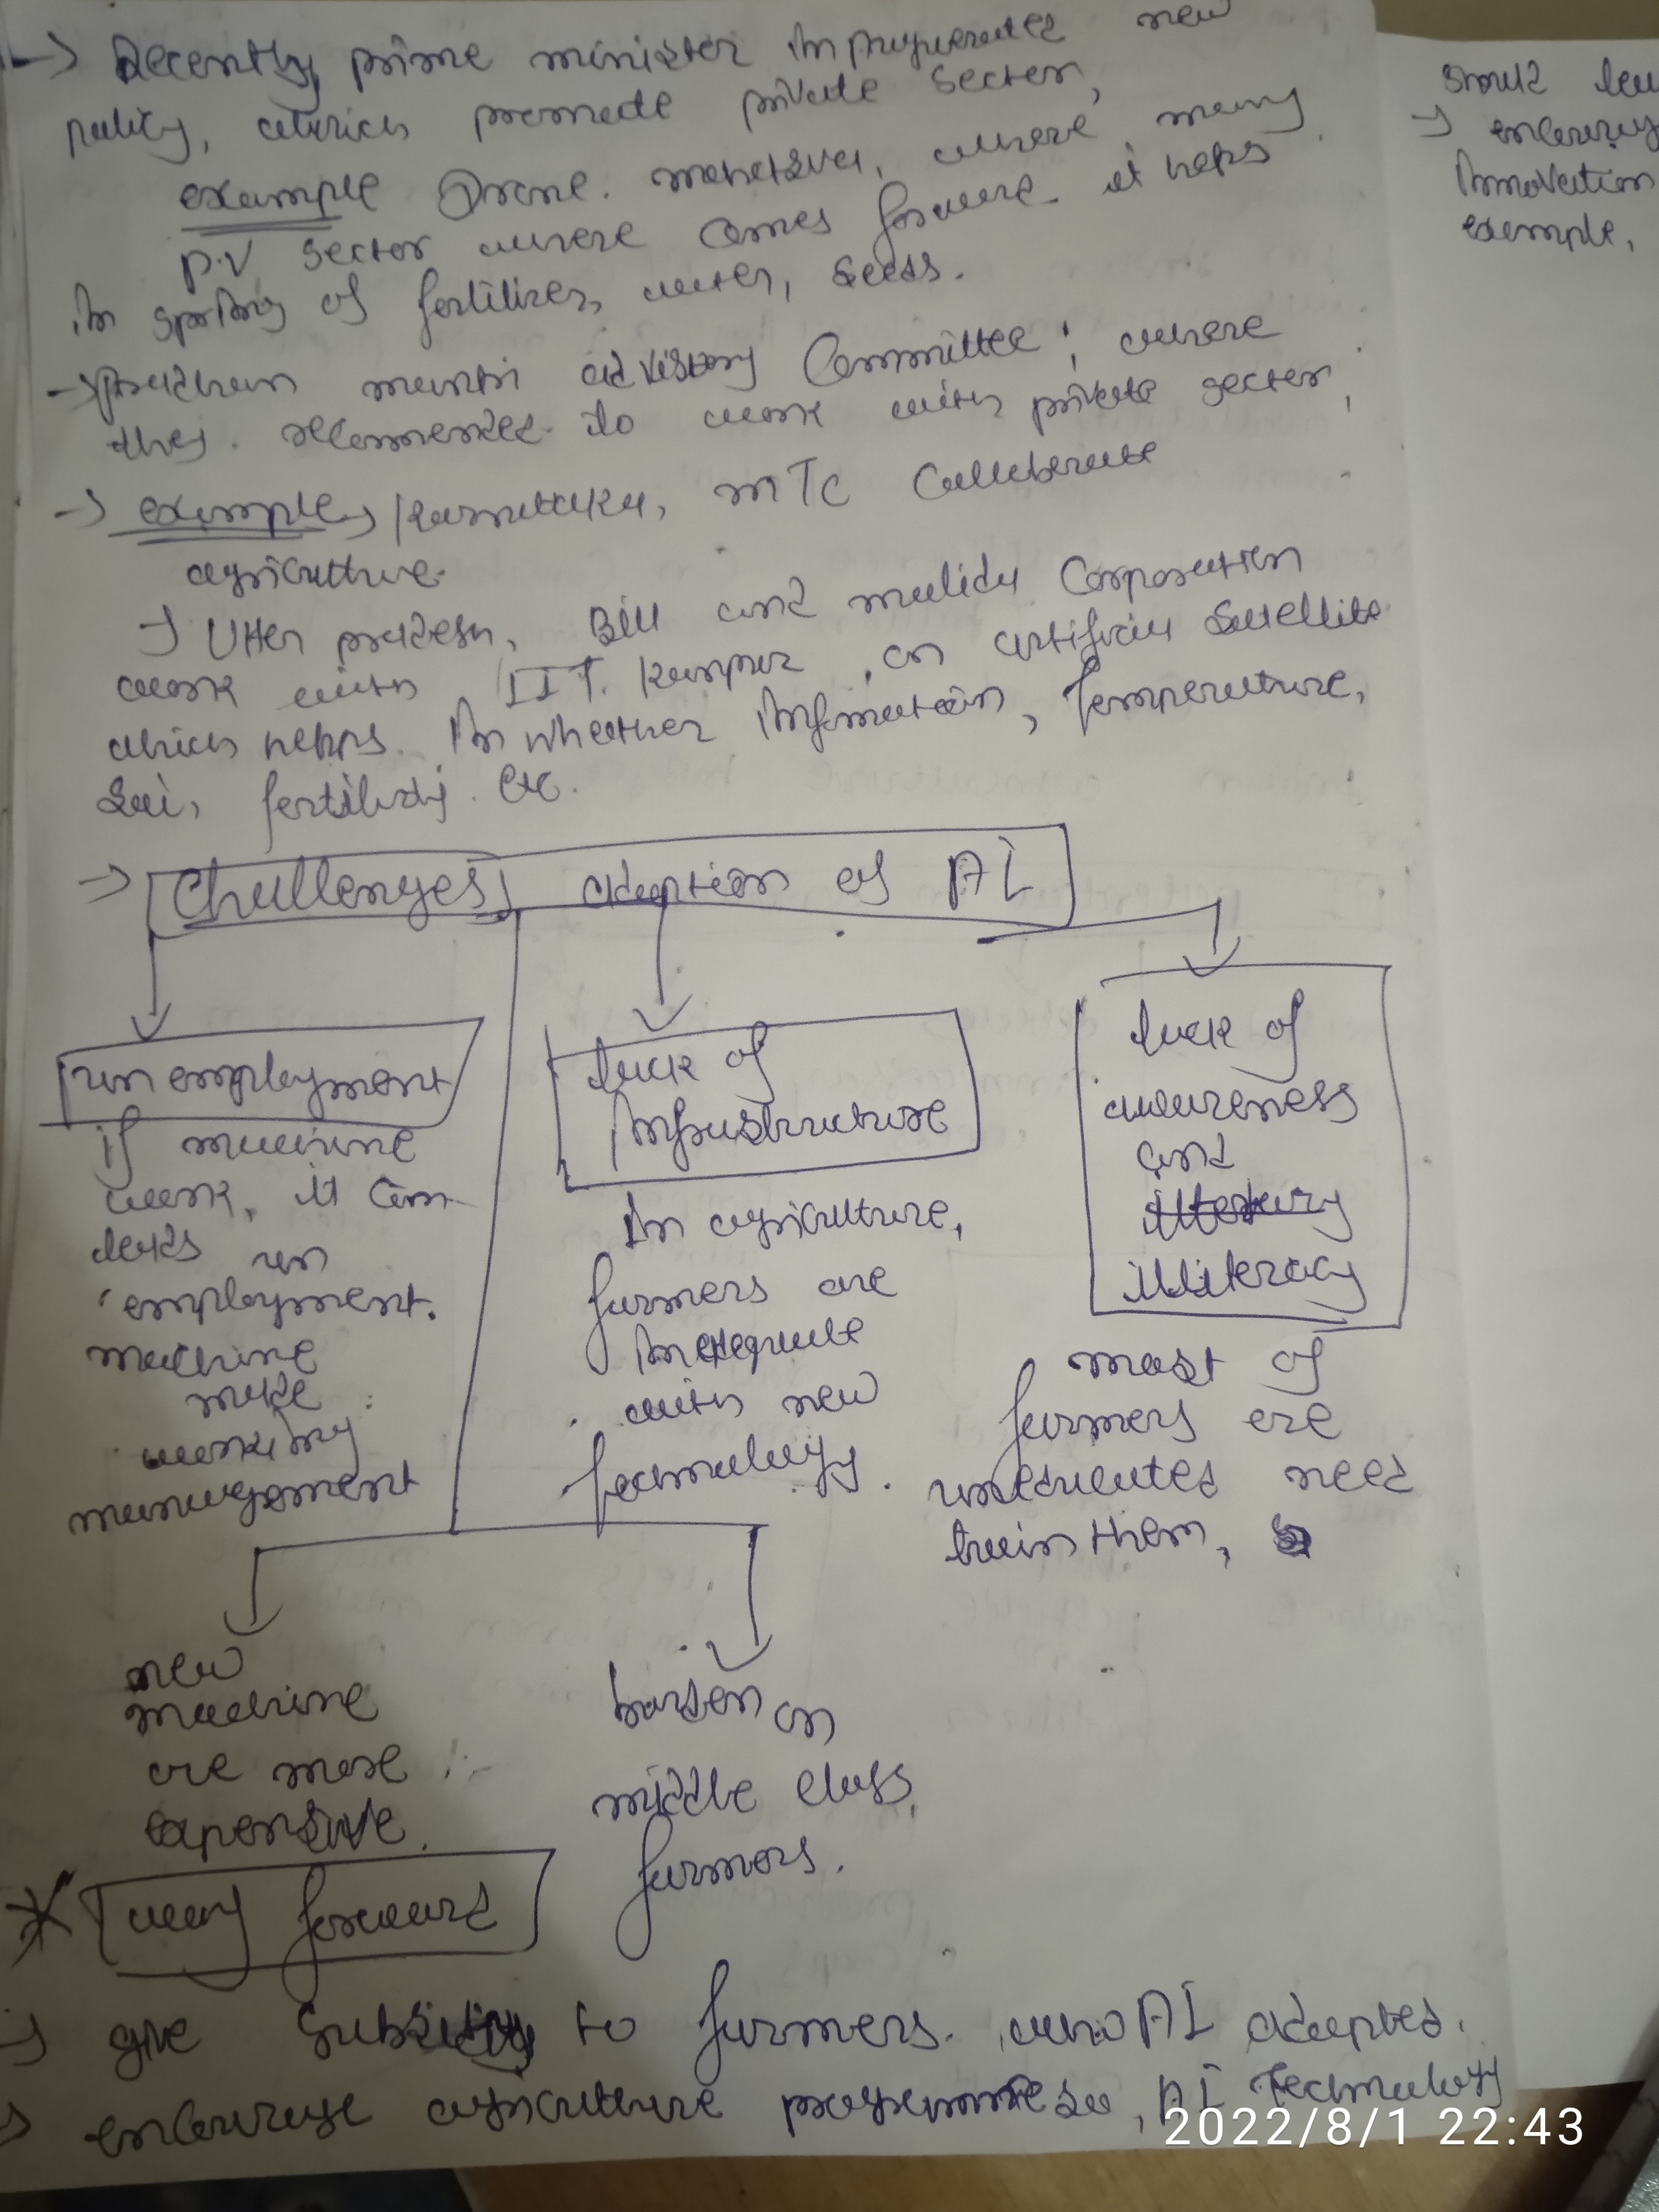 → Recently prime minister new
policy, which promote private sector,
example Drone. mahotsva, where many
P.V sector where comes it helps
in of fertilizer, water, seeds.
→ Pradhan mantri advisory Committee, where
they. recommended to work with private sector,
→ example, Karnataka, mTc
agriculture.
→ Utter pradesh, Bill and malida Corporation
work with IIT. Kanpur, on satellite
which helps. in whether Infomation, Temperature,
fertility. etc.
→ Challenges adoption of AI
unemployment
if machine
work, it can
leads un
employment.
machine
made
working
management
lack of
Infrastructure
In agriculture,
farmers are
with new
Technology.
lack of
awareness
and
illiteracy
most of
farmers are
uneducated need
train them,
new
machine
are more
expensive.
burden on
middle class,
farmers.
* way forward
→ give to farmers. who AI adopted.
→ encourage agriculture AI Technology
should
→
Innovation
example,
2022/8/1 22:43